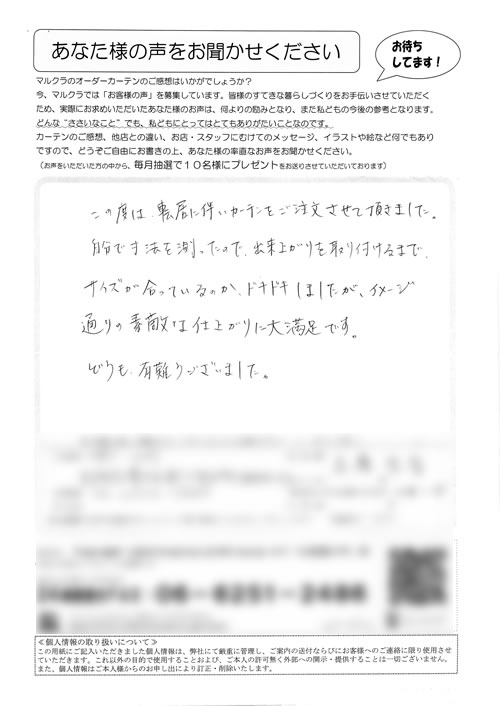 あなた様の声をお聞かせください
お待ち
してます!
マルクラのオーダーカーテンのご感想はいかがでしょうか?
今、マルクラでは「お客様の声」を募集しています。皆様のすてきな暮らしづくりをお手伝いさせていただく
ため、実際にお求めいただいたあなた様のお声は、何よりの励みとなり、また私どもの今後の参考となります。
どんな“ささいなこと”でも、私どもにとってはとてもありがたいことなのです。
カーテンのご感想、他店との違い、お店・スタッフにむけてのメッセージ、イラストや絵など何でもあり
ますので、どうぞご自由にお書きの上、あなた様の率直なお声をお聞かせください。
(お声をいただいた方の中から、毎月抽選で10名様にプレゼントをお送りさせていただいております)
この度は、転居に伴いカーテンをご注文させて頂きました。
自分で寸法を測ったので、出来上がりを取り付けるまで、
サイズが合っているのか、ドキドキしましたが、イメージ
通りの素敵な仕上がりに大満足です。
どうも、有難うございました。
06-6251-2486
≪個人情報の取り扱いについて≫
この用紙にご記入いただきました個人情報は、弊社にて厳重に管理し、ご案内の送付ならびにお客様へのご連絡に限り使用させ
ていただきます。これ以外の目的で使用することおよび、ご本人の許可無く外部への開示・提供することは一切ございません。
また、個人情報はご本人様からのお申し出により訂正・削除いたします。